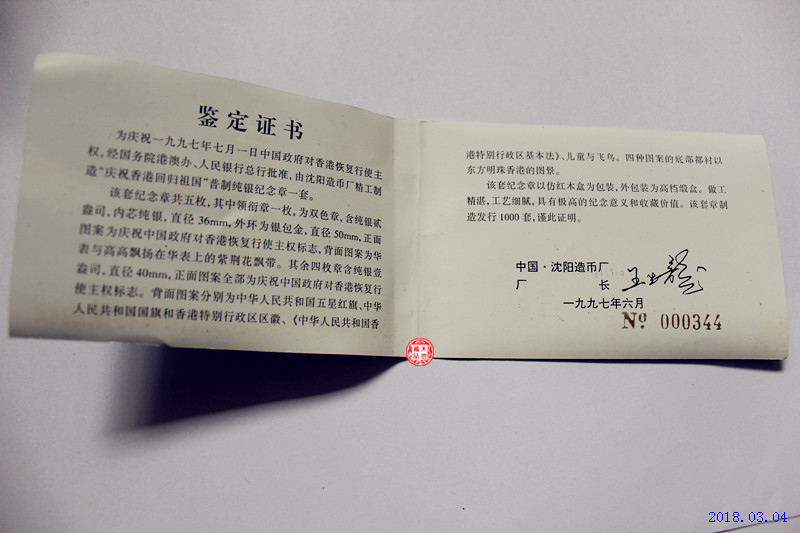 鉴定证书
为庆祝一九九七年七月一日中国政府对香港恢复行使主
权，经国务院港澳办、人民银行总行批准，由沈阳造币厂精工制
造“庆祝香港回归祖国”普制纯银纪念章一套。
该套纪念章共五枚，其中领衔章一枚，为双色章，含纯银贰
盎司，内芯纯银，直径36mm，外环为银包金，直径50mm，正面
图案为庆祝中国政府对香港恢复行使主权标志，背面图案为华
表与高高飘扬在华表上的紫荆花飘带。其余四枚章含纯银壹
盎司，直径40mm，正面图案全部为庆祝中国政府对香港恢复行
使主权标志。背面图案分别为中华人民共和国五星红旗、中华
人民共和国国旗和香港特别行政区区徽、《中华人民共和国香
港特别行政区基本法》、儿童与飞鸟。四种图案的底部都衬以
东方明珠香港的图景。
该套纪念章以仿红木盒为包装，外包装为高档缎盒。做工
精湛，工艺细腻，具有极高的纪念意义和收藏价值。该套章制
造发行1000套，谨此证明。
中国·沈阳造币厂
厂 长
一九九七年六月
Nº 000344
2018.03.04